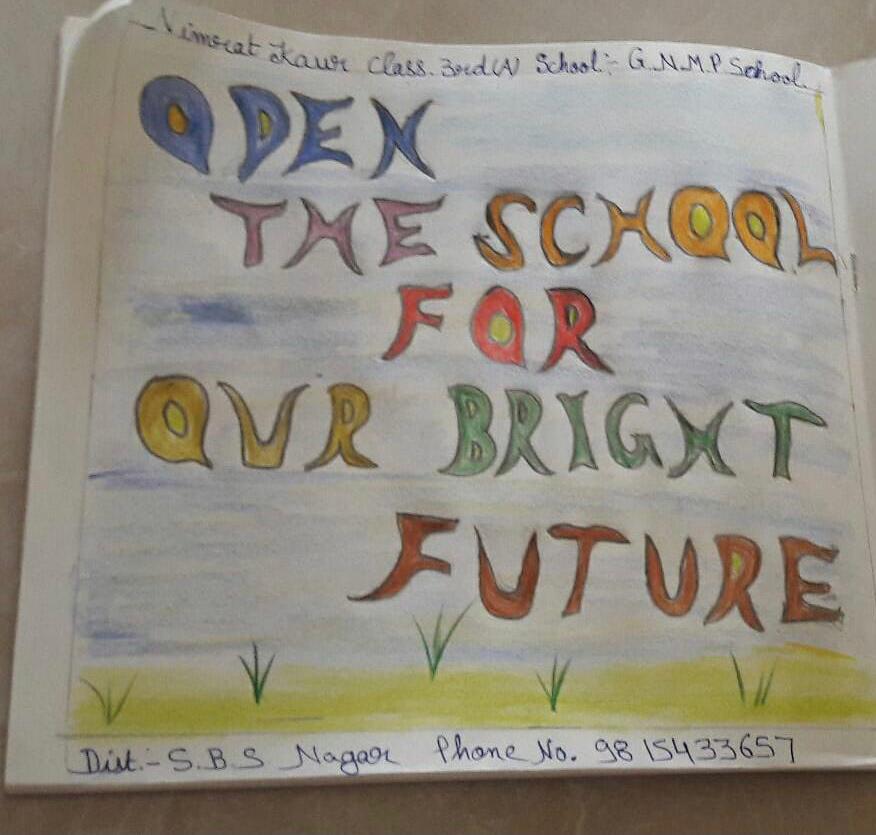 Nimrat Kaur Class. 3rd(A) School:- G.N.M.P. School
OPEN
THE SCHOOL
FOR
OUR BRIGHT
FUTURE
Dist:- S.B.S Nagar Phone No. 9815433657